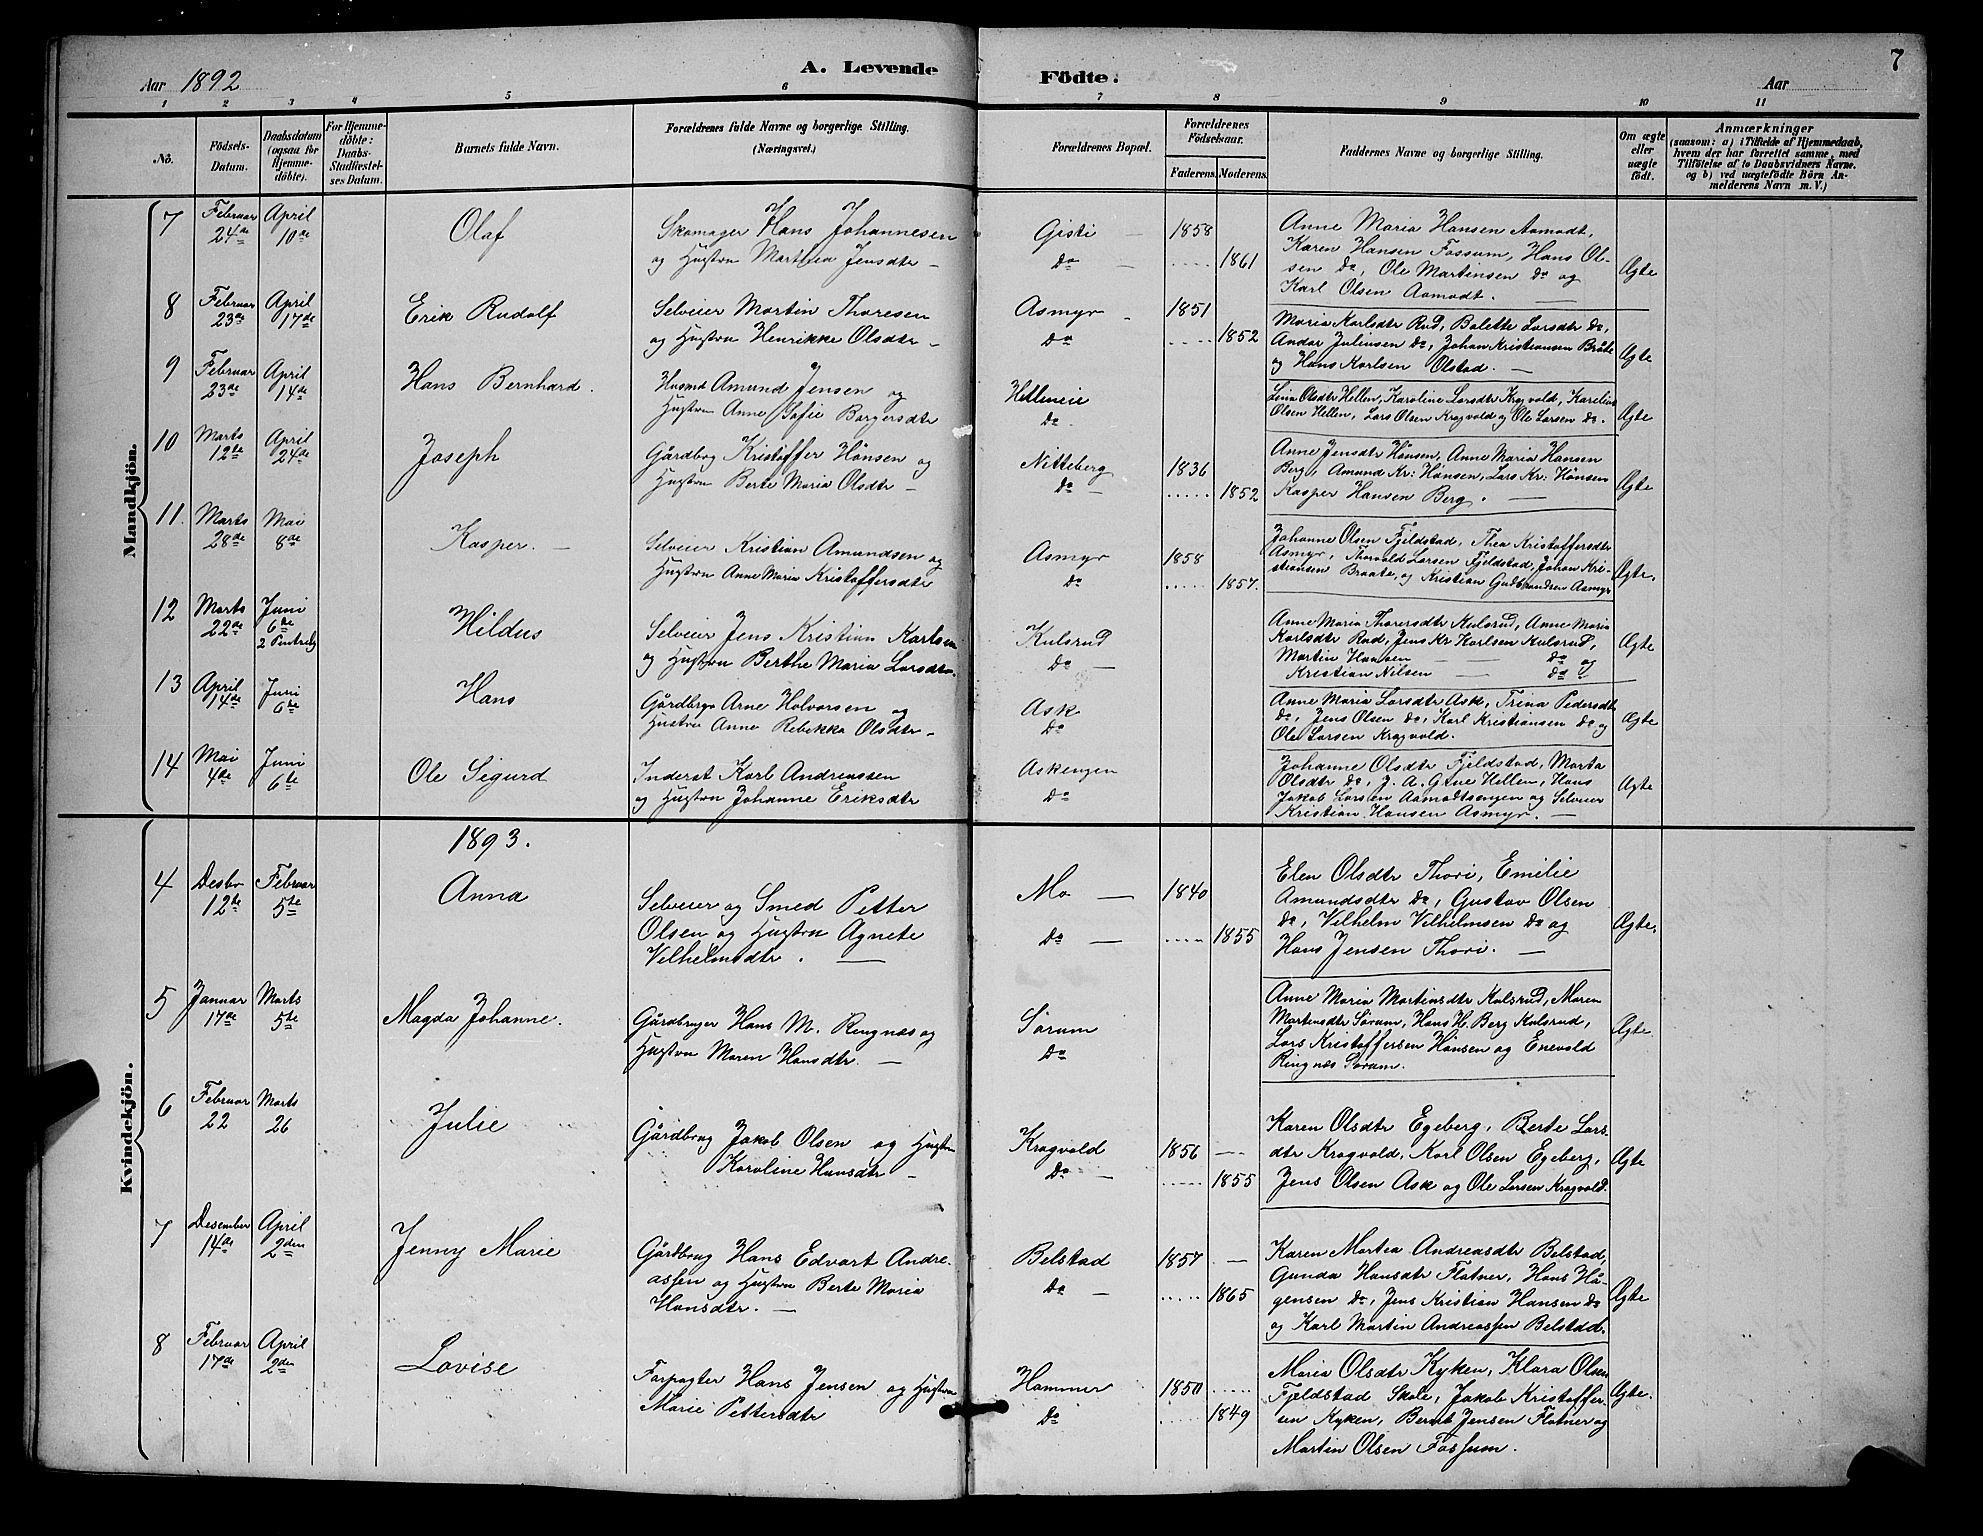 7
Aar 1892
A. Levende Födte.
Aar
1 2 3 4 5 6 7 8 9 10 11
No.
Födsels-Datum.
Daabsdatum (ogsaa for Hjemme-döbte).
For Hjemme-döbte: Daabs-Stadfæstel-ses Datum.
Barnets fulde Navn.
Forældrenes fulde Navne og borgerlige Stilling. (Næringsvei.)
Forældrenes Bopæl.
Forældrenes Födselsaar.
Faderens. Moderens.
Faddernes Navne og borgerlige Stilling.
Om ægte eller uægte födt.
Anmærkninger
(saasom: a) i Tilfælde af Hjemmedaab, hvem der har forrettet samme, med Tilföielse af to Daabsvidners Navne. og b) ved uægtefödte Börn An-melderens Navn m. V.)
Mandkjön.
7 Februar 24de April 10de Olaf
Skomager Hans Johannesen
og Hustru Marthea Jensdtr –
Gisti – 1858
Do – ..... 1861
Anne Maria Hansen Aamodt,
Karen Hansen Fossum, Hans Ol-
sen Do, Ole Martinsen Do og
Karl Olsen Aamodt. –
Ægte
8 Februar 23de April 17de Erik Rudolf
Selveier Martin Thoresen
og Hustru Henrikke Olsdtr –
Asmyr – 1851
Do ..... 1852
Maria Karlsdtr Rud, Bolette Larsdtr Do,
Andor Juliusen Do, Johan Kristiansen Bråte
og Hans Karlsen Olstad. –
Ægte
9 Februar 23de April 14de Hans Bernhard.
Husmd Amund Jensen og
Hustru Anne Sofie Borgersdtr
Helleneie
Do.
Lina Olsdtr Hellen, Karoline Larsdtr Kragvold, Karelius
Olsen Hellen, Lars Olsen Kragvold og Ole Larsen Do.
Ægte
10 Marts 12te April 24de Joseph
Gårdbrg Kristoffer Hönsen og
Hustru Berte Maria Olsdtr –
Nitteberg 1836
Do – ..... 1852
Anne Jensdtr Hönsen, Anne Maria Hansen
Berg, Amund Kr: Hönsen, Lars Kr: Hönsen
Kasper Hansen Berg. –
Ægte
11. Marts 28de Mai 8de Kasper. –
Selveier Kristian Amundsen og
Hustru Anne Maria Kristoffersdtr
Asmyr 1858
Do ..... 1857.
Johanne Olsen Fjeldstad, Thea Kristoffersdtr
Asmyr, Thorvald Larsen Fjeldstad, Johan Kri-
stiansen Braate, og Kristian Gudbrandsen Asmyr
Ægte.
12 Marts 22de Juni 6te Hildus
Selveier Jens Kristian Karlsen
og Hustru Berthe Maria Larsdtr.
Kulsrud
Do –
Anne Maria Thoresdtr Kulsrud, Anne Maria
Karlsdtr Rud, Jens Kr Karlsen Kulsrud,
Martin Hansen – – Do og
Kristian Nilsen – Do
Ægte
13 April 14de Juni 6te Hans
Gårdbrgr Arne Halvorsen og
Hustru Anne Rebekka Olsdtr –
Ask
Do
Anne Maria Larsdtr Ask, Trina Pedersdtr
Do, Jens Olsen Do, Karl Kristiansen Do og
Ole Larsen Kragvold.
Ægte
14 Mai 4de Juni 6te Ole Sigurd
Inderst Karl Andreassen
og Hustru Johanne Eriksdtr
Askengen
Do
Johanne Olsdtr Fjeldstad, Marta
Olsdtr Do, J. A. Hellen, Hans
Jakob Larsen Aamodtsengen og Selveier
Kristian Hansen Asmyr. –
Ægte
1893.
Kvindekjön.
4 Desbr 12te Februar 5te Anna
Selveier og Smed Petter
Olsen og Hustru Agnete
Vilhelmsdtr. –
Mo – 1840
Do – ..... 1855
Elen Olsdtr Thori, Emilie
Amundsdtr Do, Gustav Olsen
Do, Vilhelm Vilhelmsen Do og
Hans Jensen Thori. –
Ægte.
5 Januar 17de Marts 5te Magda Johanne.
Gårdbruger Hans M. Ringnæs og
Hustru Maren Hansdtr. –
Sörum
Do
Anne Maria Martinsdtr Kulsrud, Maren
Martinsdtr Sörum, Hans H. Berg Kulsrud,
Lars Kristoffersen Hönsen og Enevold
Ringnæs Sörum.
Ægte.
6 Februar 22 Marts 26 Julie
Gårdbrug Jakob Olsen og Hustru
Karoline Hansdtr –
Kragvold 1856 –
Do – ..... 1855
Karen Olsdtr Egeberg, Berte Lars-
dtr Kragvold, Karl Olsen Egeberg,
Jens Olsen Ask og Ole Larsen Kragvold.
Ægte
7 Desember 14de April 2den Jenny Marie
Gårdbrug Hans Edvart Andre-
assen og Hustru Berte Maria
Hansdtr. –
Belstad 1857 –
Do – ..... 1865
Karen Martea Andreasdtr Belstad,
Gunda Hansdtr Flatner, Hans Hå-
gensen Do, Jens Kristian Hansen Do
og Karl Martin Andreassen Belstad.
Ægte
8 Februar 17de April 2den Lovise
Forpagter Hans Jensen og Hustru
Marie Pettersdtr
Hammer 1850 .....
Do ..... 1849
Maria Olsdtr Kyken, Klara Olsen
Fjeldstad Skole, Jakob Kristoffer-
sen Kyken, Bernt Jensen Flatner og
Martin Olsen Fossum.
Ægte.